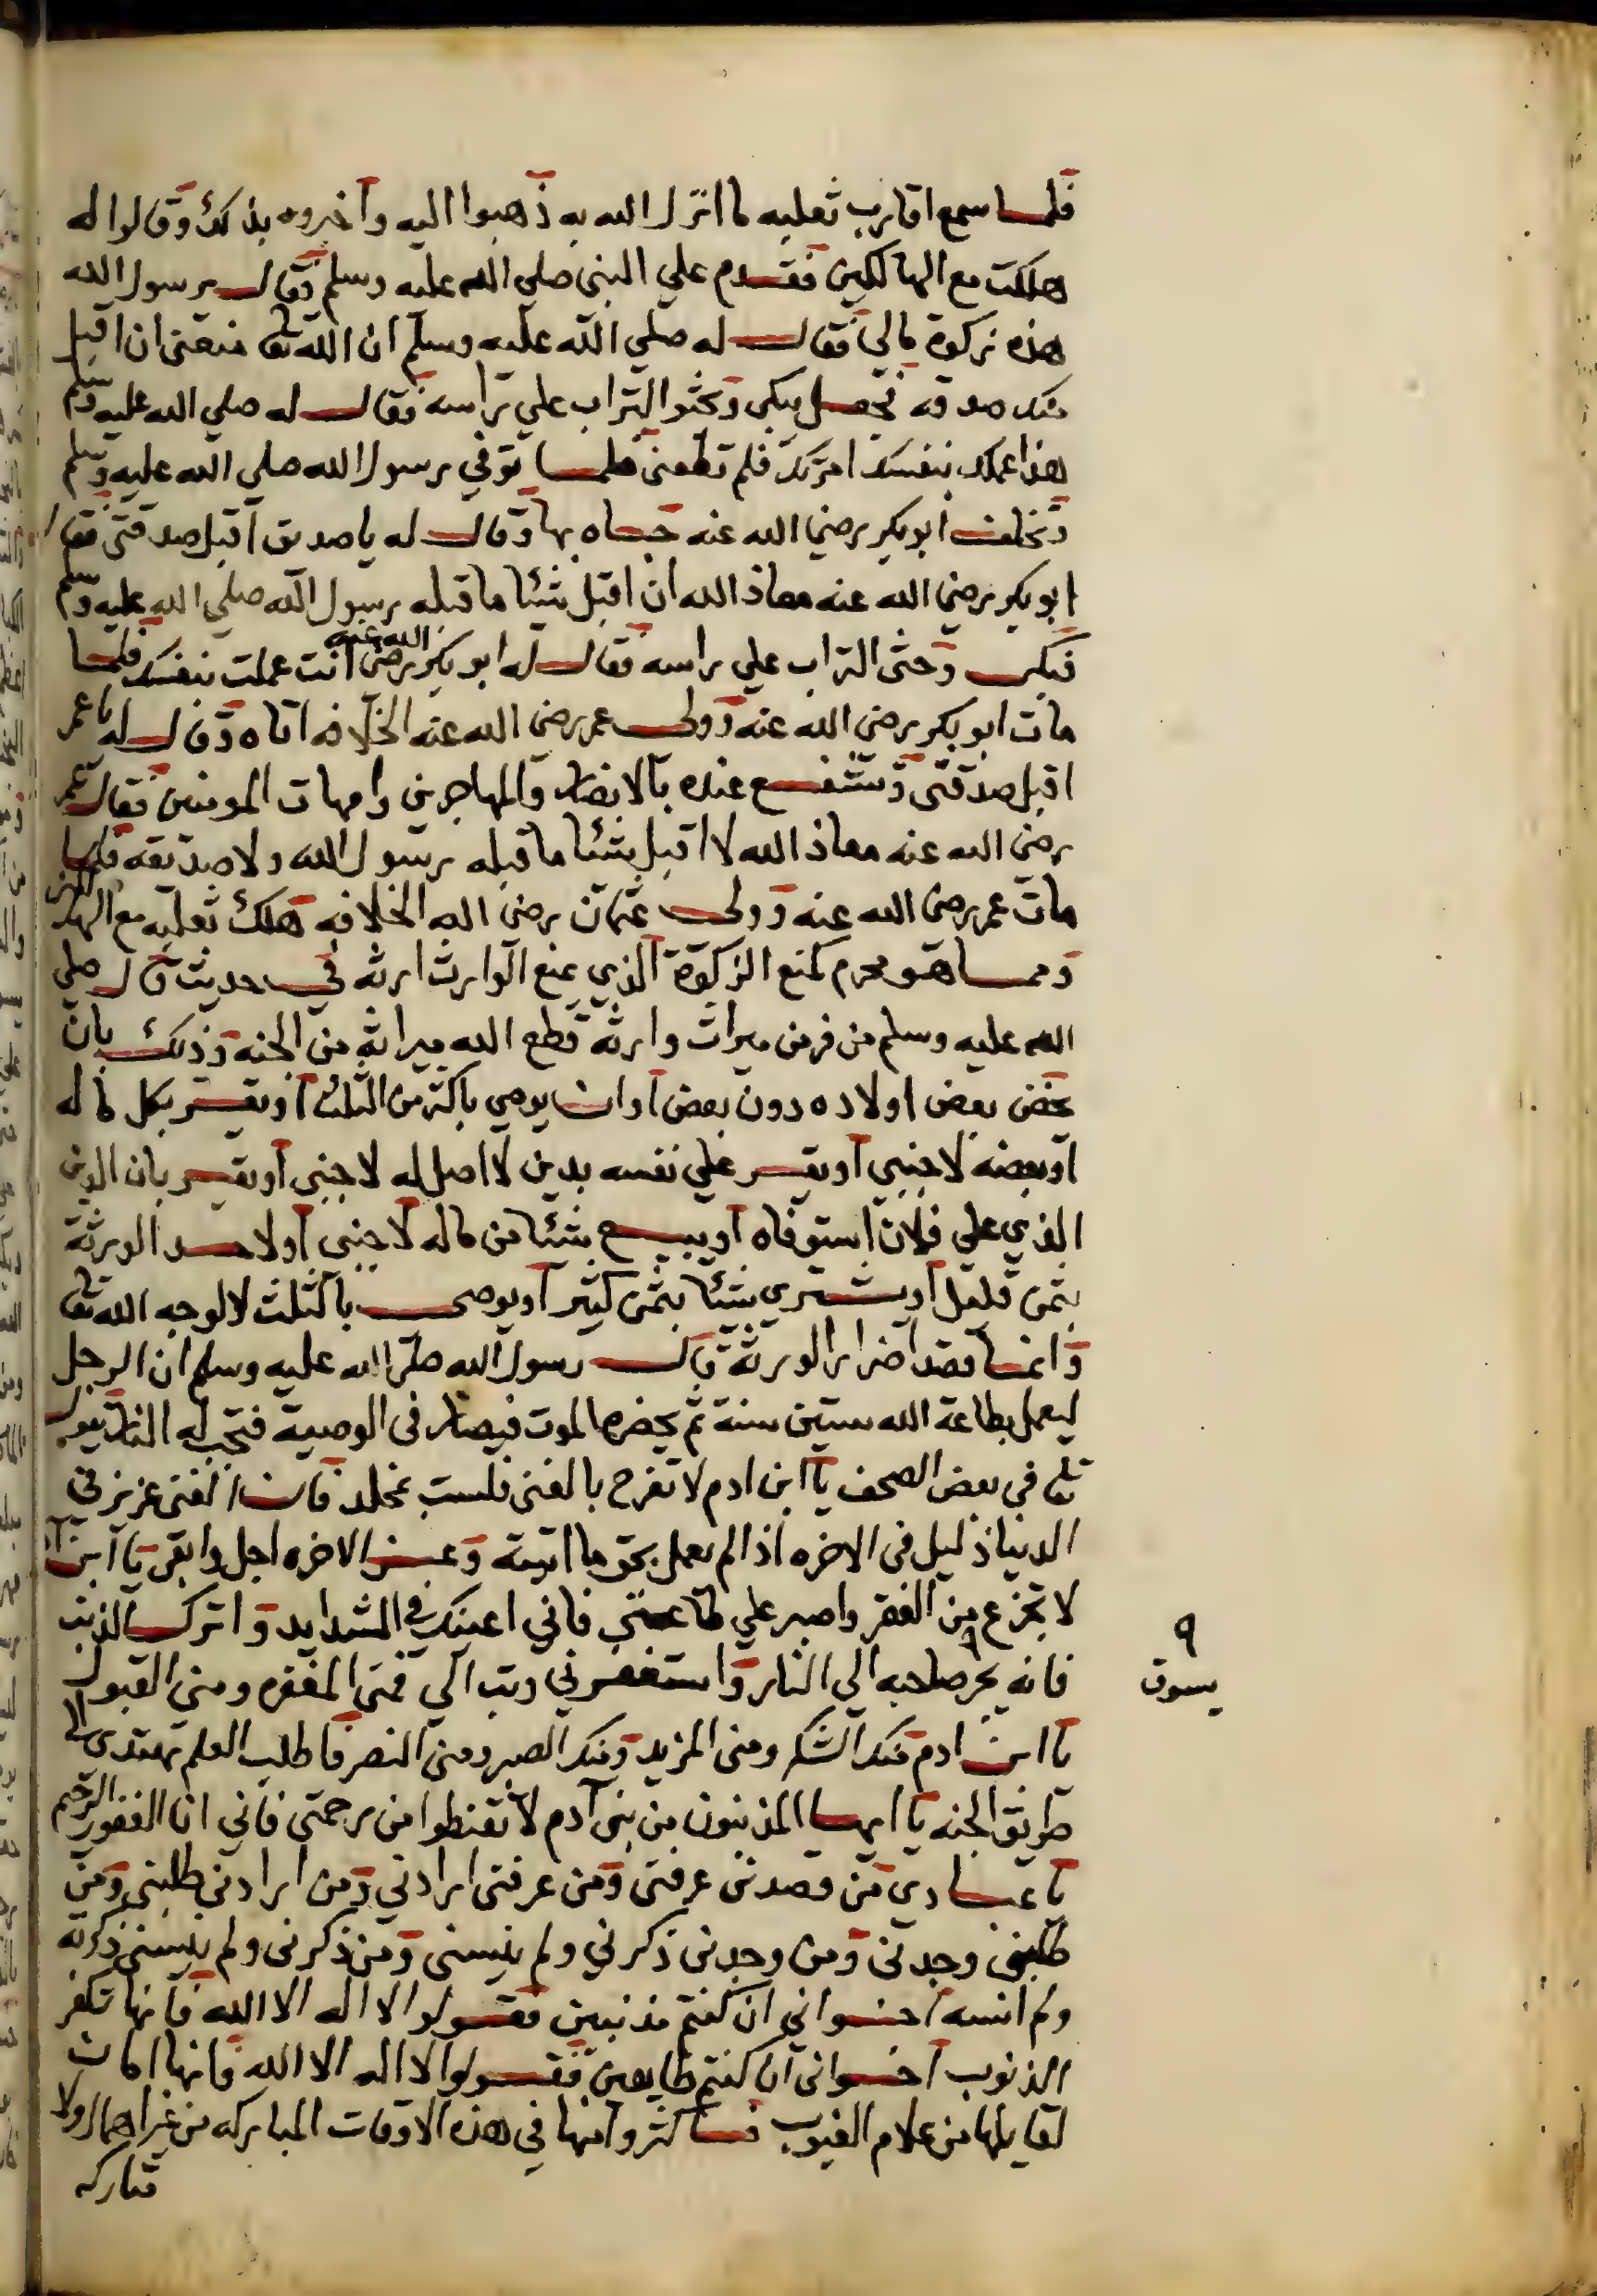 فلما سمع اقارب ثعلبه ما انزل الله به ذهبوا اليه واخبروه بذلك وقالوا له
هلكت مع الهالكين فقدم علي النبي صلي الله عليه وسلم وقال يرسول الله
هذه زكوة مالي فقال له صلي الله عليه وسلم ان الله تعا منعني ان اقبل
منك صدقه فجعل يبكي ويحثو التراب علي راسه فقال له صلي الله عليه وسلم
هذا عملك بنفسك امرتك فلم تطعني فلما توفي رسول الله صلي الله عليه وسلم
وتخلف ابو بكر رضي الله عنه جاه بها وقال له يا صديق اقبل صدقتي فقال
ابو بكر رضي الله عنه معاذ الله ان اقبل شيئا ما قبله رسول الله صلي الله عليه وسلم
فبكي وحثي التراب علي راسه فقال له ابو بكر رضي الله عنه انت عملت بنفسك فلما
مات ابو بكر رضي الله عنه وولي عمر رضي الله عنه الخلافه اتاه وقال له يا عمر
اقبل صدقتي وتشفع عنده بالانصار والمهاجرين وامهات المومنين فقال عمر
رضي الله عنه معاذ الله لا اقبل شيئا ما قبله رسول الله ولا صديقه فلما
مات عمر رضي الله عنه وولي عثمان رضي الله الخلافه هلك ثعلبه مع الهالكين
ومما هو محرم كمنع الزكوة الذي يمنع الوارث ارثه في حديث قال صلي
الله عليه وسلم من فر من ميراث وارثه قطع الله ميراثه من الجنه وذلك بان
يخص بعض اولاده دون بعض او ان يوصي باكثر من الثلث او يقر بكل ماله
او بعضه لاجنبي او يقر علي نفسه بدين لا اصل له لاجنبي او يقر بان الدين
الذي علي فلان استوفاه او يبيع شيئا من ماله لاجنبي او لاحد الورثة
بثمن قليل او يشتري شيئا بثمن كثير او يوصي بالثلث لا لوجه الله تعا
وانما قصد اضرار الورثة قال رسول الله صلي الله عليه وسلم ان الرجل
ليعمل بطاعة الله ستين سنة ثم يحضره الموت فيضار في الوصية فتجب له النار يقول
تعا في بعض الصحف يا ابن ادم لا تفرح بالغني فلست بمخلد فان الغني عزيز في
الدنيا ذليل في الاخره اذا لم يعمل بحق ما اتيته وعز الاخره اجل وابقي يا ابن ادم
لا تجزع من الفقر واصبر علي طاعتي فاني اعينك في الشدايد واترك الذنب
فانه يجر صاحبه الي النار واستغفرني وتب الي فمني المغفره ومني القبول
٩
يسوق
يا ابن ادم منك الشكر ومني المزيد ومنك الصبر ومني النصر فاطلب العلم تهتدي الي
طريق الجنه يا ايها المذنبون من بني آدم لا تقنطوا من رحمتي فاني انا الغفور الرحيم
يا عبادي من قصدني عرفني ومن عرفني ارادني ومن ارادني طلبني ومن
طلبني وجدني ومن وجدني ذكرني ولم ينسني ومن ذكرني ولم ينسني ذكرته
ولم انسه اخواني ان كنتم مذنبين فقولوا لا اله الا الله فانها تكفر
الذنوب اخواني ان كنتم طايعين فقولوا لا اله الا الله فانها امان
لقايلها من علام الغيوب فاكثروا منها في هذه الاوقات المباركه من غير اهمال ولا